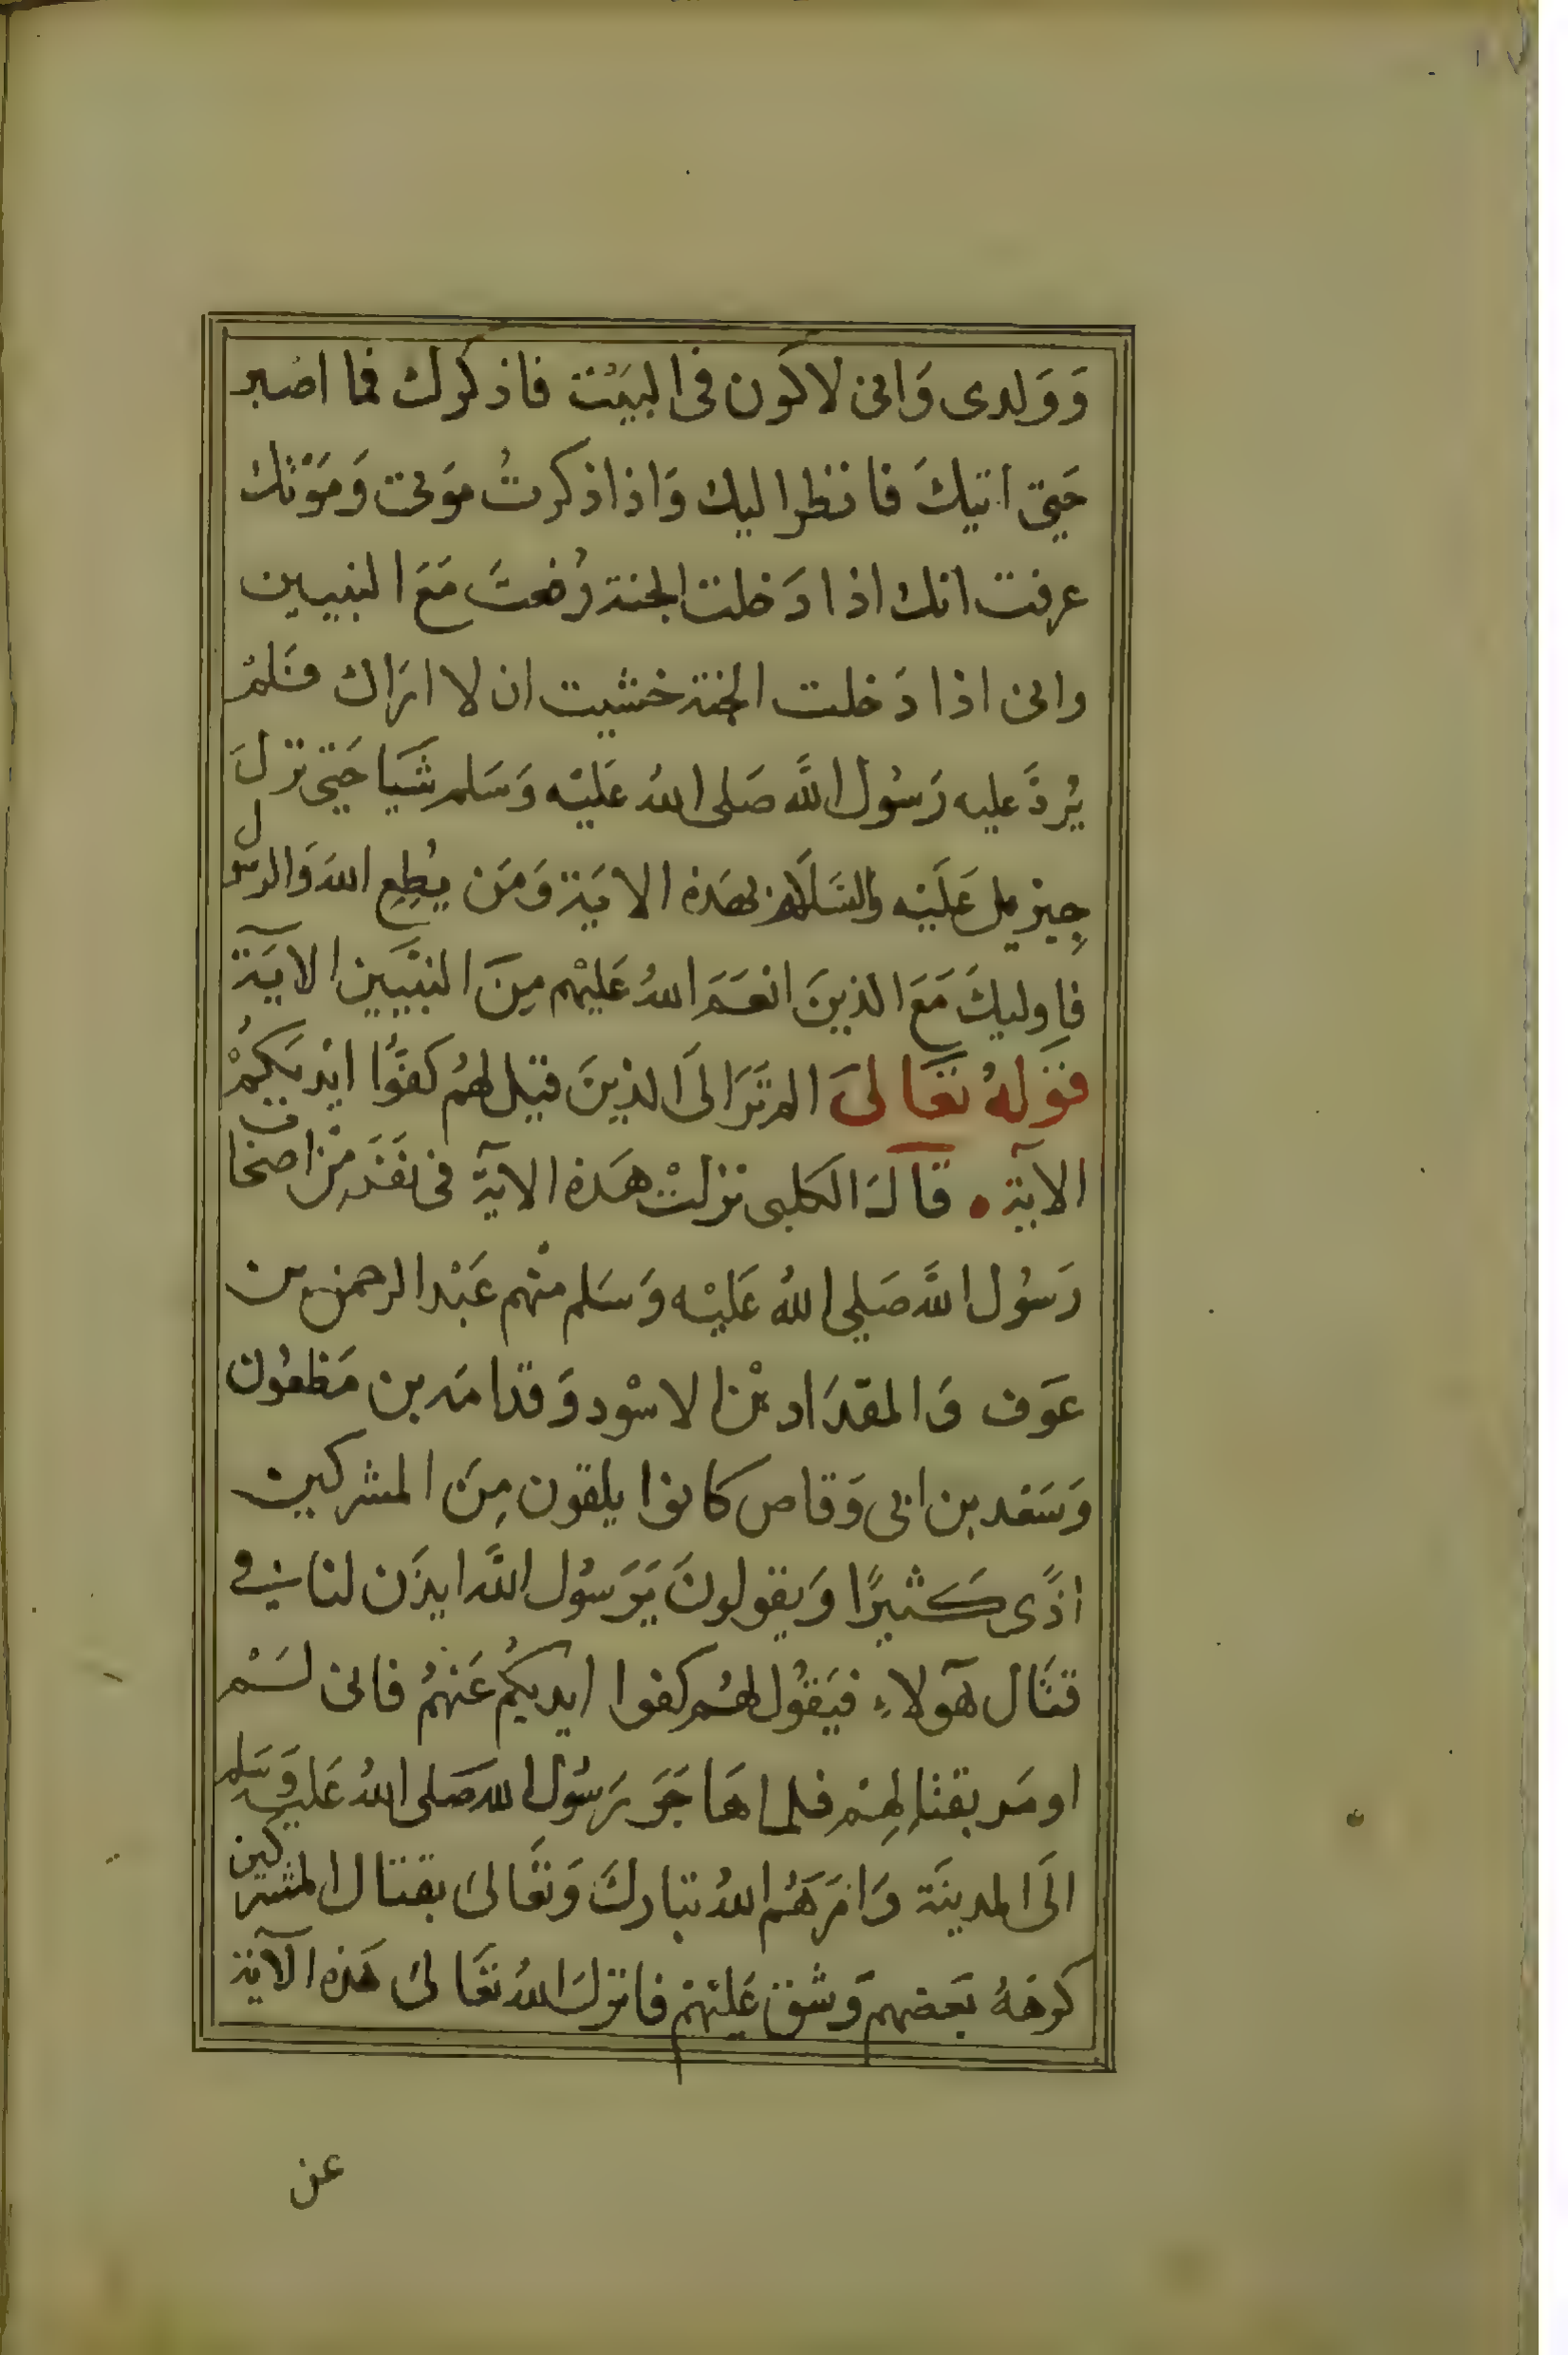 وَوَلدى وَانى لاكون فى البيَت فاذكرك فما اصبر
حَتى اتيكَ فانظر اليك وَاذا ذكرتُ موَتى وَموَتك
عرفت انك اذا دَخلت الجنة رُفعتَ مَعَ النبيين
وانى اذا دَخلت الجنة خشيت ان لا ارَاك فلمْ
يُردَّ عليه رَسُول اللَّه صَلى اللهُ عَليْه وَسَلم شَيا حَتى نزلَ
جِبريل عَلَيْه والسَلام بهَذه الايَة وَمَن يُطِعِ اللهَ وَالرسول
فاوليكَ مَعَ الذينَ انعَمَ اللهُ عَليْهم مِنَ النبَيين الآيَة
قولهُ تعَالىَ المرتَرَ الىَ الذينَ قيل لهُم كفوُّا ايْديَكمُْ
الآية قالَ الكلبى نزلتْ هَذه الآيَة فى نفَر مِّن اصحَاب
رَسُول اللَّه صَلى اللهُ عَليْه وَسَلم منْهم عَبْد الرحمن بن
عَوف وَالمقدَاد بْن الاسْود وَقدامَه بن مَظعُون
وَسَعد بن ابى وَقاص كانوا يلقون مِنَ المشركين
اذًى كَثيرًا وَيقولونَ يَرَسوُل اللَّه ايذَن لنا فى
قتَال هَآولاء فيَقوُل لهُم كفوا ايديكمُ عَنهمُ فانى لسَمْ
اومَر بقتالِهِمْ فلما هَاجَرَ رَسُول الله صَلى اللهُ عَليه وَسَلم
الَى المدينَة وَامَرَهُم اللهُ تبَاركَ وَتعَالىَ بقتال المشركين
كرهَهُ بَعضهم وَشق عَليْهمْ فانزلَ اللهُ تعَالىَ هَذه الآية
عن